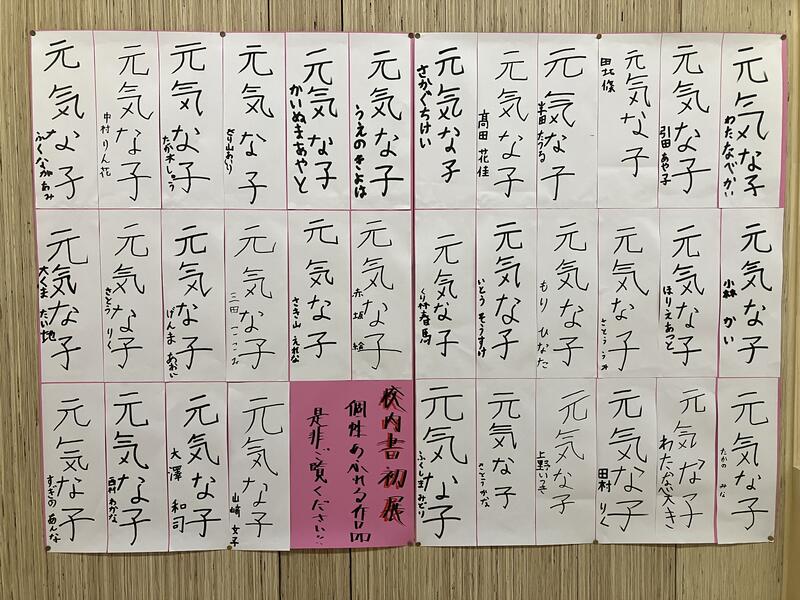 元気な子
わたなべかい
元気な子
引田 あや子
元気な子
元気な子
元気な子
高田 花佳
元気な子
さかぐちけい
元気な子
うえのきよは
元気な子
かいぬまあやと
元気な子
元気な子
元気な子
中村 りん花
元気な子
ふくなが あみ
元気な子
小林 かい
元気な子
ほりえあつと
元気な子
さとう うみ
元気な子
もり ひなた
元気な子
いとう そうすけ
元気な子
くり林春馬
元気な子
赤坂 絵
元気な子
さき山 えれな
元気な子
元気な子
げんま あおい
元気な子
さとう りく
元気な子
大くま たい地
元気な子
たかの みな
元気な子
わたなべ大き
元気な子
田村 りく
元気な子
上野いつき
元気な子
さとうかな
元気な子
ふくしまみどり
校内書初展
個性あふれる作品
是非ご覧ください!!
元気な子
山崎
元気な子
大澤 和司
元気な子
西村 わかな
元気な子
すぎの あんな